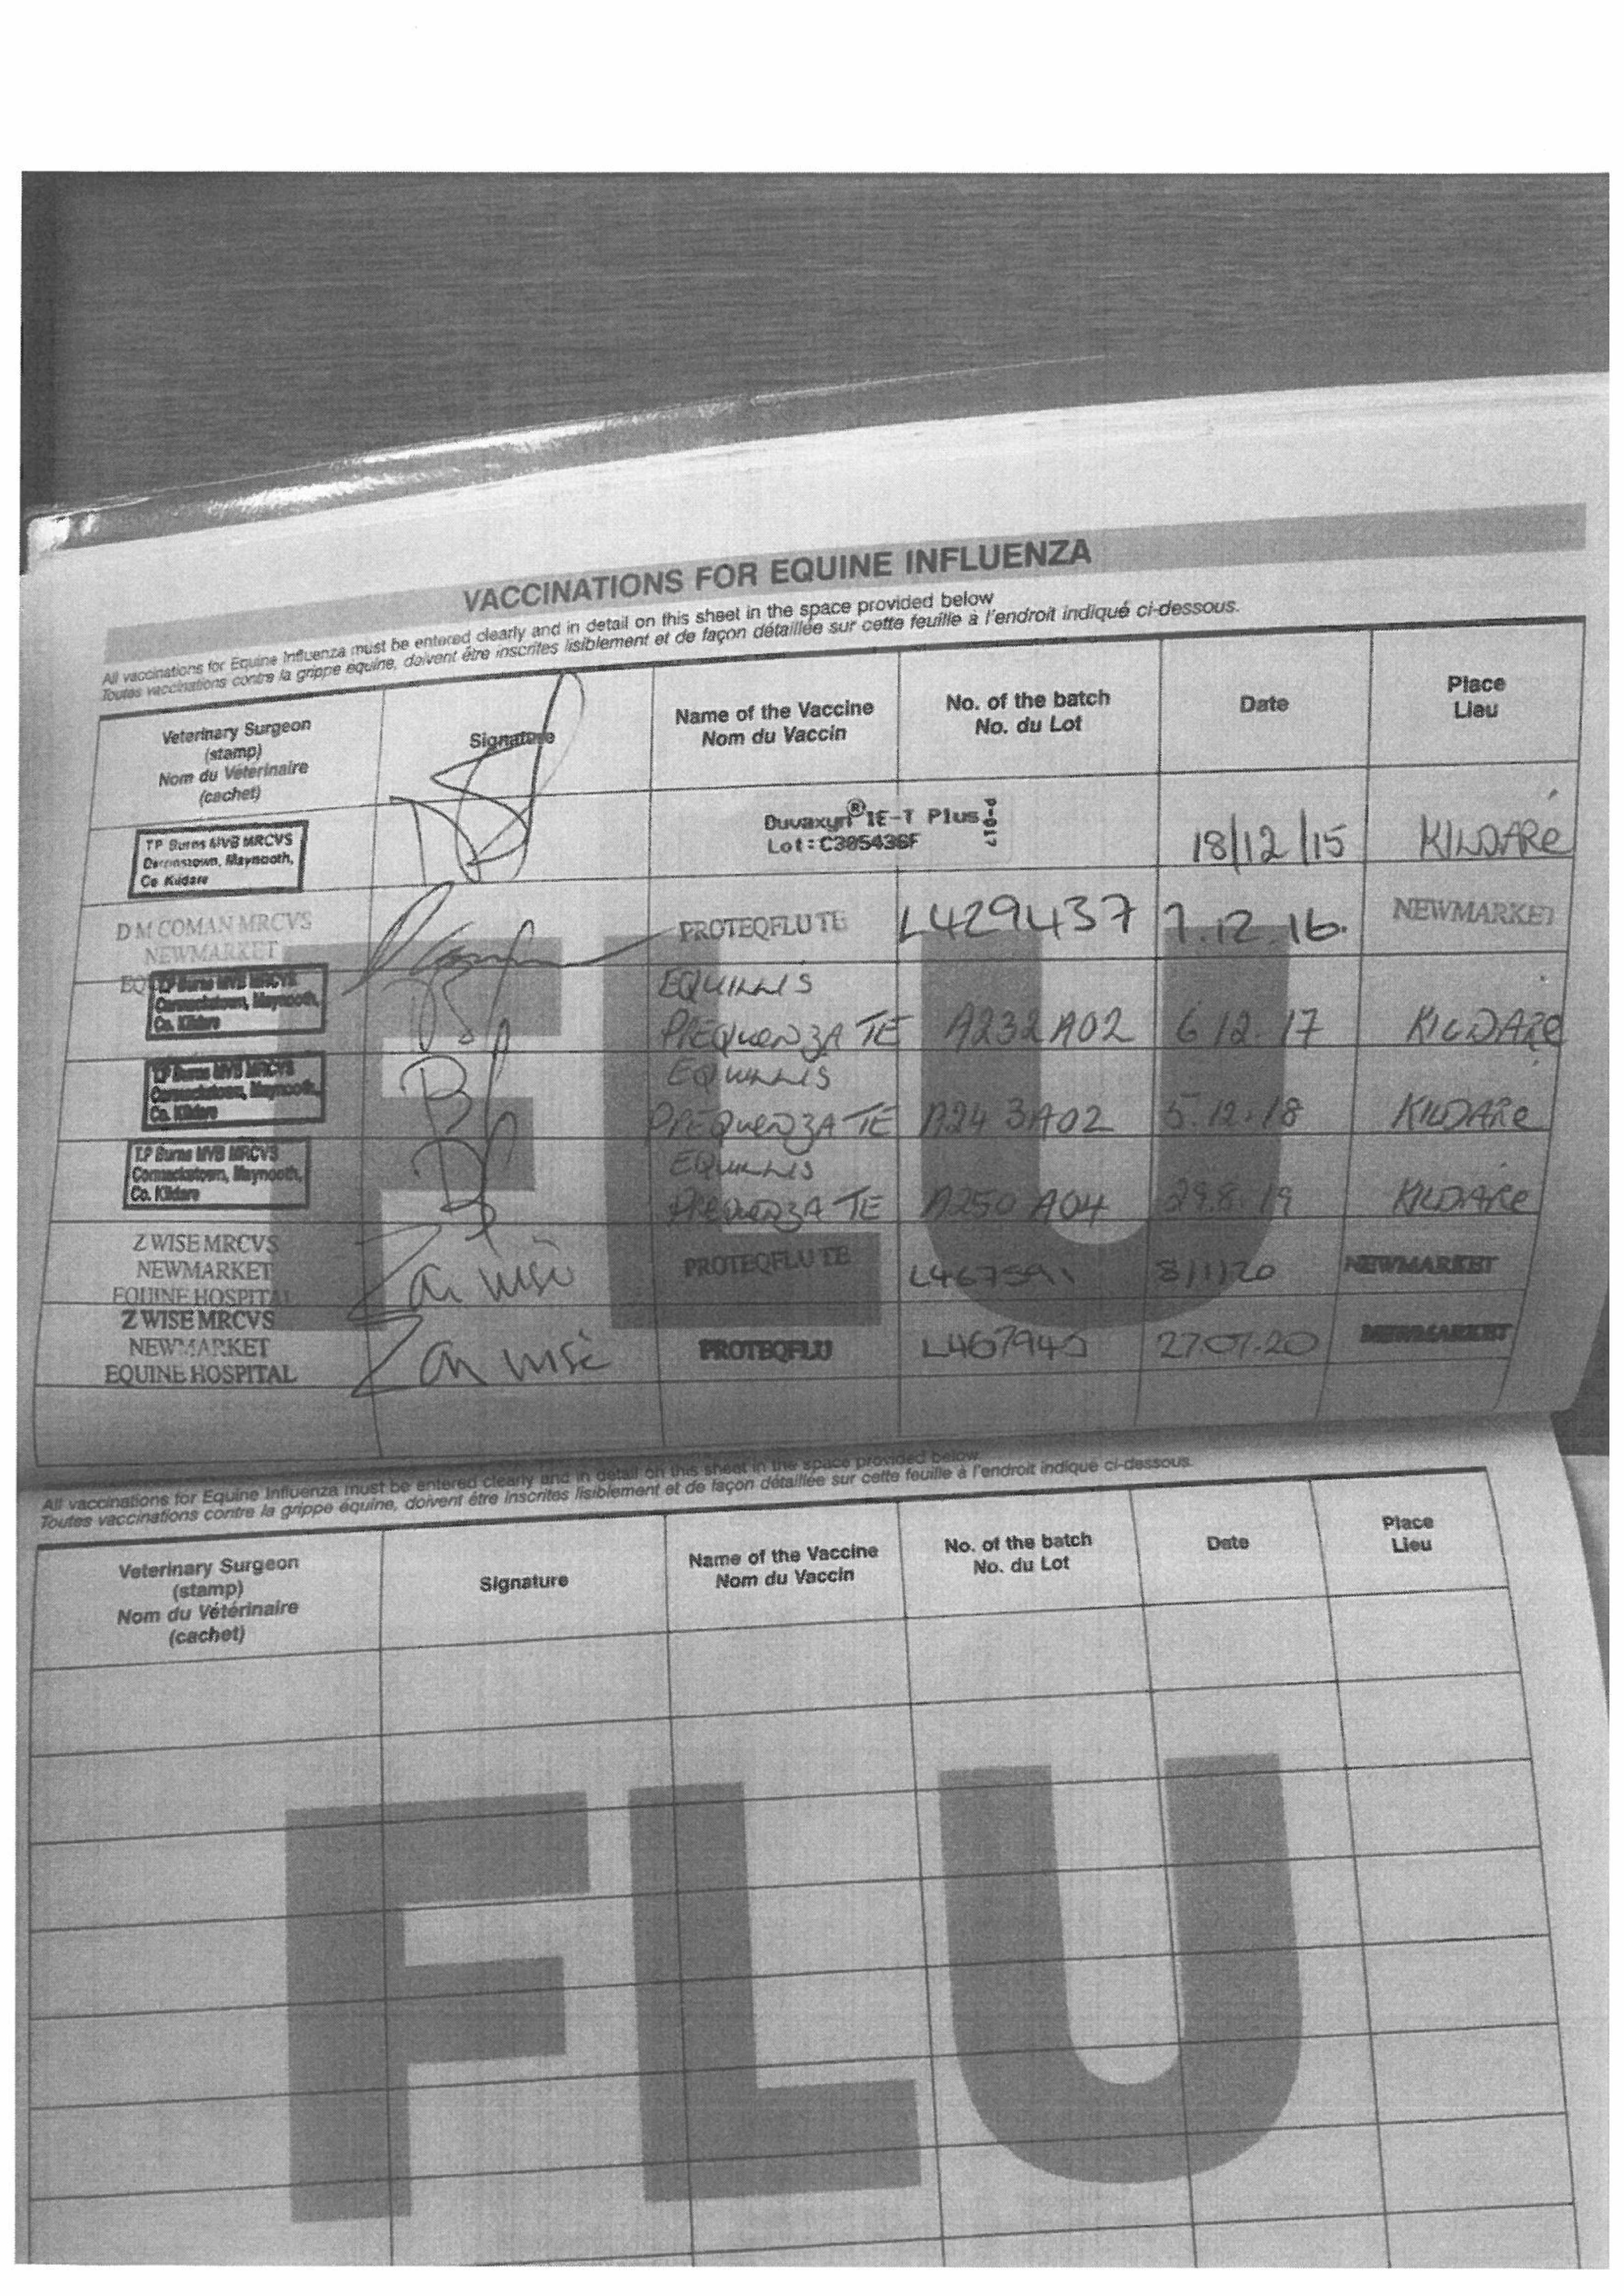 VACCINATIONS FOR EQUINE INFLUENZA
All vaccinations for Equine Influenza must be entered clearly and in detail on this sheet in the space provided below
Toutes vaccinations contre la grippe équine, doivent être inscrites lisiblement et de façon détaillée sur cette feuille à l'endroit indiqué ci-dessous.
Veterinary Surgeon
(stamp)
Nom du Véterinaire
(cachet)
Signature
Name of the Vaccine
Nom du Vaccin
No. of the batch
No. du Lot
Date
Place
Lieu
T.P Burns MVB MRCVS
Derrinstown, Maynooth,
Co Kildare
Duvaxyn® IE-T Plus
Lot:C305436F
18/12/15
KILDARE
D M COMAN MRCVS
NEWMARKET
EQ
PROTEQFLU TE
L429437
7.12.16.
NEWMARKET
T.P Burns MVB MRCVS
Cormackstown, Maynooth,
Co. Kildare
EQUILLIS
PREQUENZA TE
A232A02
6 12.17
KILDARE
T.P Burns MVB MRCVS
Cormackstown, Maynooth,
Co. Kildare
EQUILLIS
PREQUENZA TE
A243A02
5.12.18
KILDARE
T.P Burns MVB MRCVS
Cormackstown, Maynooth,
Co. Kildare
EQUILLIS
PREQUENZA TE
A250 A04
29.8.19
KILDARE
Z WISE MRCVS
NEWMARKET
EQUINE HOSPITAL
PROTEQFLU TE
8/1/20
NEWMARKET
Z WISE MRCVS
NEWMARKET
EQUINE HOSPITAL
PROTEQFLU
27.07.20
NEWMARKET
FLU
All vaccinations for Equine Influenza must be entered clearly and in detail on this sheet in the space provided below
Toutes vaccinations contre la grippe équine, doivent être inscrites lisiblement et de façon détaillée sur cette feuille à l'endroit indiqué ci-dessous.
Veterinary Surgeon
(stamp)
Nom du Vétérinaire
(cachet)
Signature
Name of the Vaccine
Nom du Vaccin
No. of the batch
No. du Lot
Date
Place
Lieu
FLU